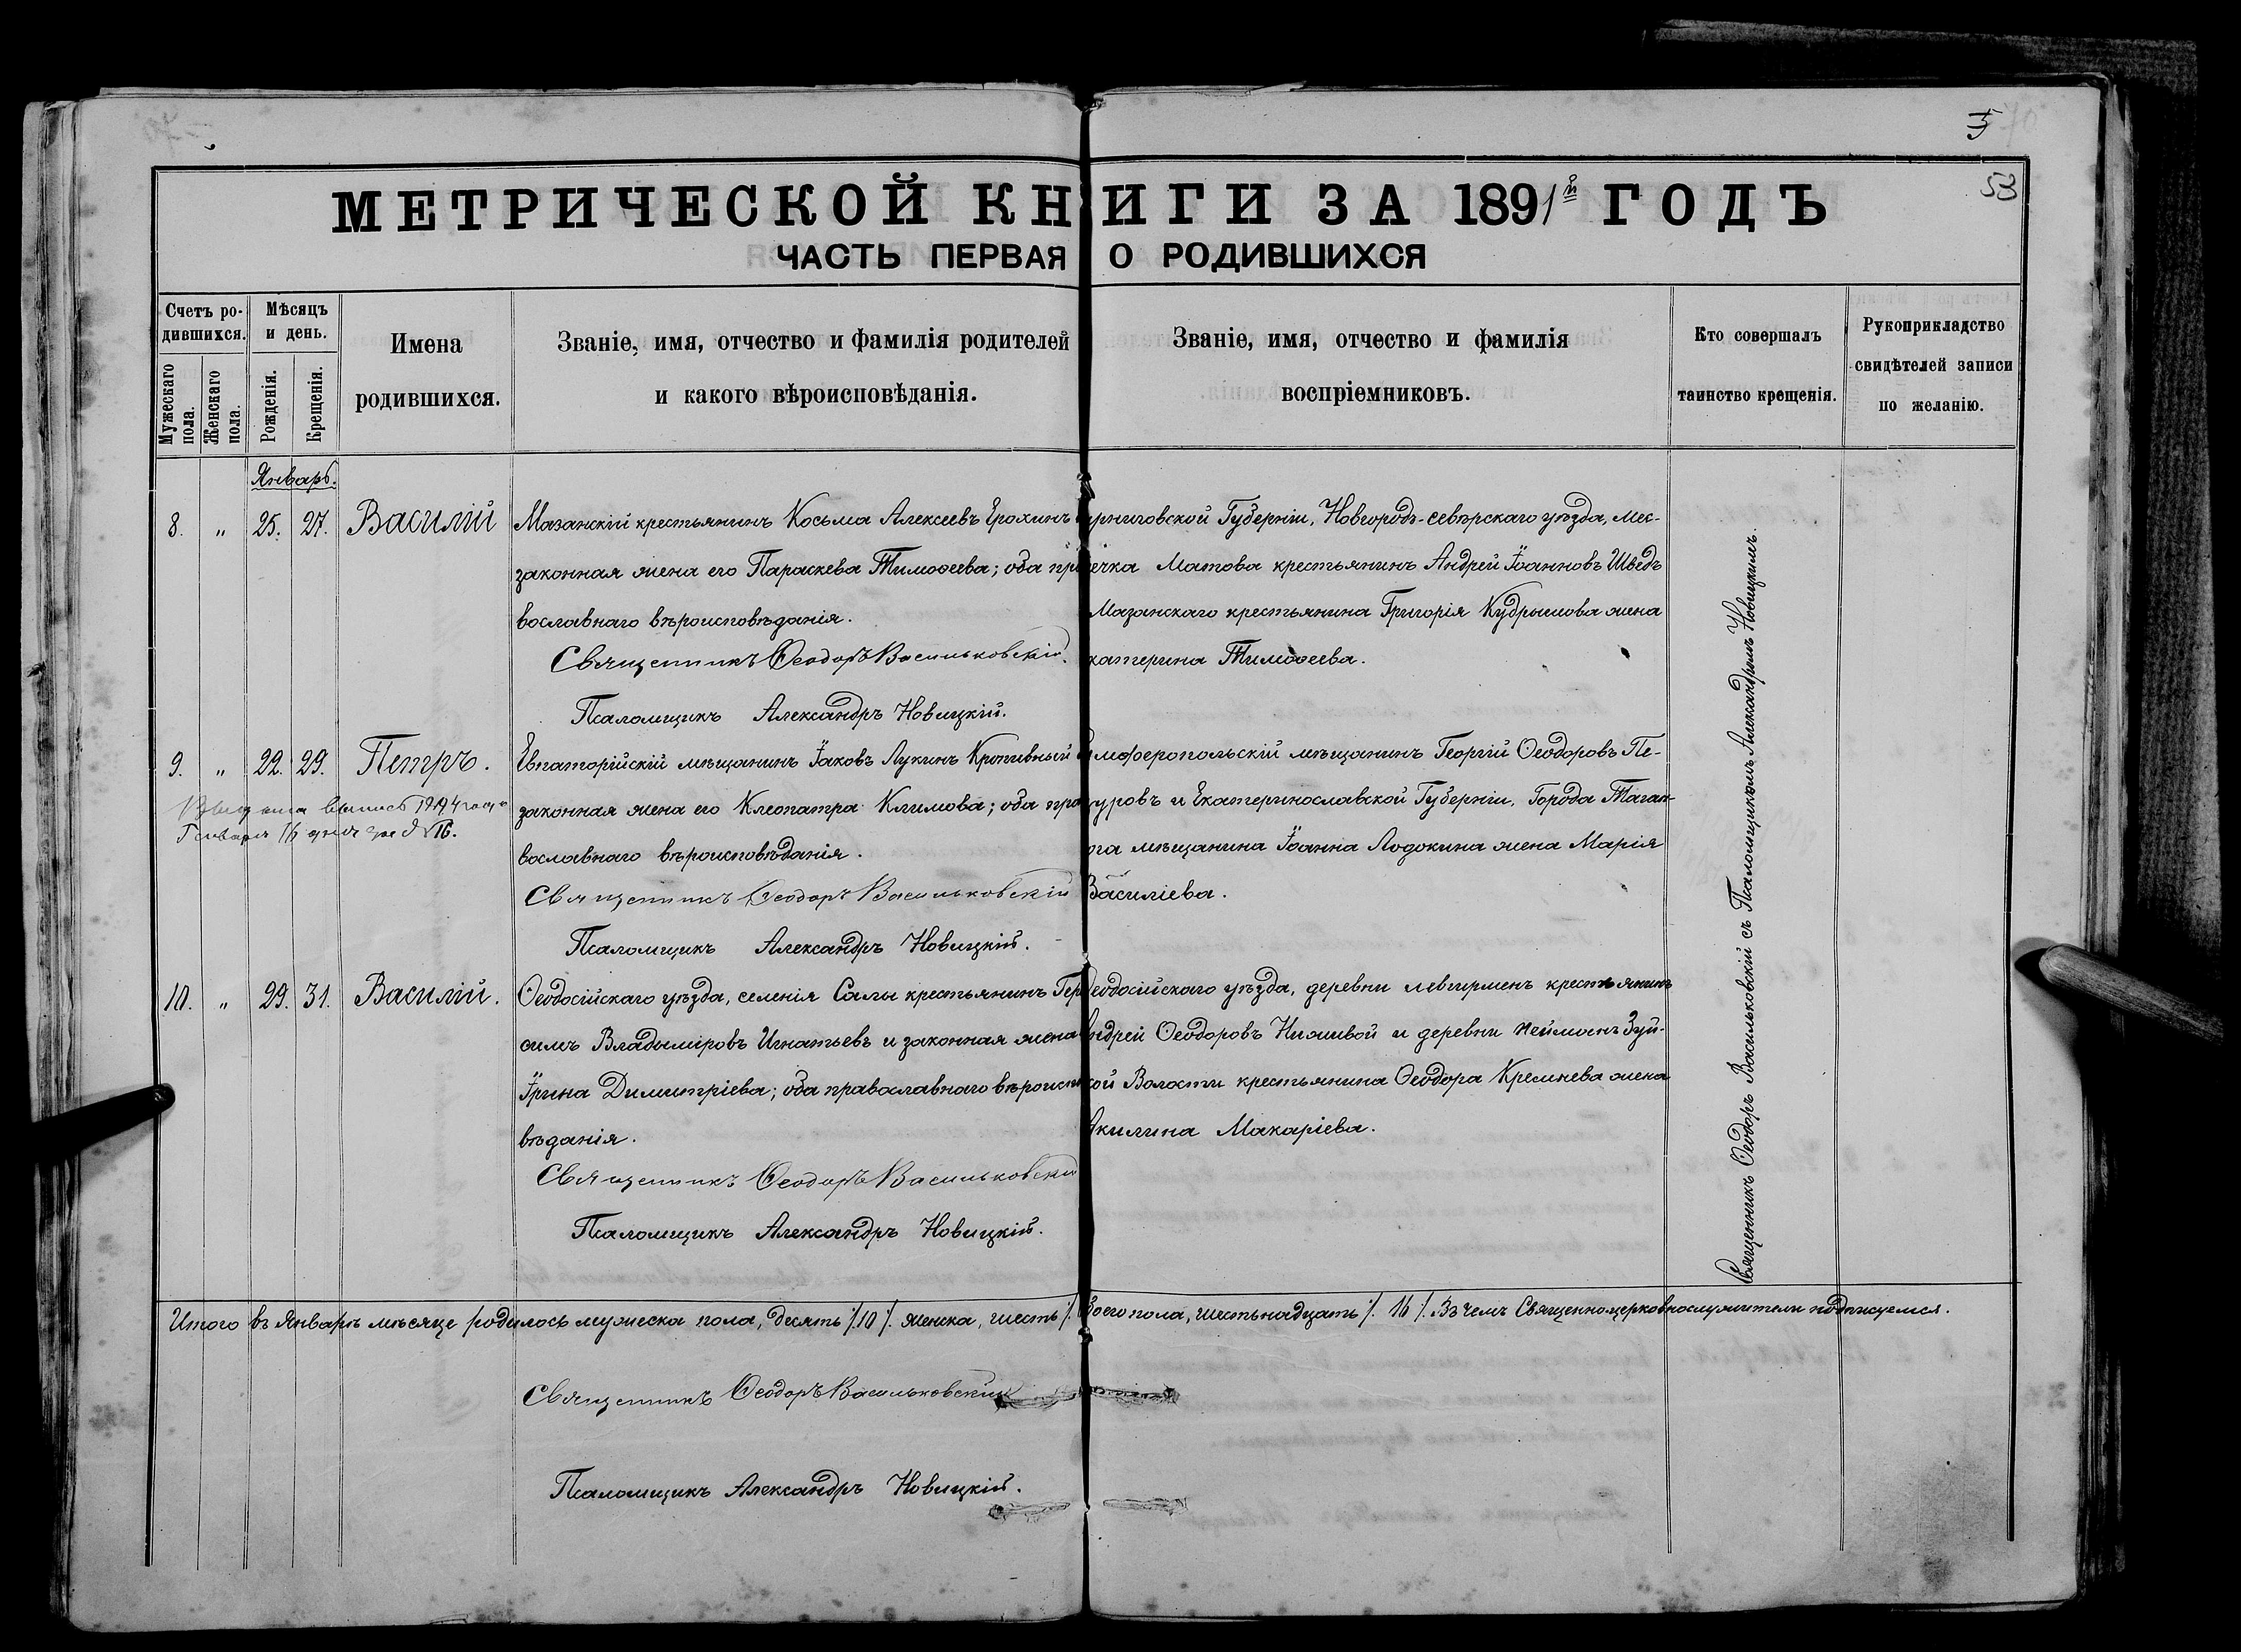 5
53
МЕТРИЧЕСКОЙ КНИГИ ЗА 1891й ГОДЪ
ЧАСТЬ ПЕРВАЯ О РОДИВШИХСЯ
Счетъ ро-
дившихся.
Мужескаго пола.
Женскаго пола.
Мѣсяцъ
и день.
Рожденія.
Крещенія.
Имена
родившихся.
Званіе, имя, отчество и фамилія родителей
и какого вѣроисповѣданія.
Званіе, имя, отчество и фамилія
воспріемниковъ.
Кто совершалъ
таинство крещенія.
Рукоприкладство
свидѣтелей записи
по желанію.
Январь.
8. " 25. 27. Василій
Мазанскій крестьянинъ Косьма Алексеевъ Ерохинъ
законная жена его Параскева Тимоѳеева; оба пра
вославнаго вѣроисповѣданія.
Священникъ Ѳеодоръ Васильковскій.
Псаломщикъ Александръ Новицкій.
ерниговской Губерніи, Новгородъ-севѣрскаго уѣзда, мес-
течка Матова крестьянинъ Андрей Іоанновъ Шведъ
Мазанскаго крестьянина Григорія Кудрышова жена
катерина Тимоѳеева.
9. " 22. 29. Петръ.
Выдана выпись 1914 года
Января 16 дня за № 16.
Евпаторійскій мѣщанинъ Іаковъ Лукинъ Кропивный
законная жена его Клеопатра Климова; оба пра
вославнаго вѣроисповѣданія.
Священникъ Ѳеодоръ Васильковскій
Псаломщикъ Александръ Новицкій.
имферопольскій мѣщанинъ Георгій Ѳеодоровъ Пе-
туровъ и Екатеринославской Губерніи, Города Таган-
рога мѣщанина Іоанна Лодокина жена Марія
Василіева.
10. " 29. 31. Василій.
Ѳеодосійскаго уѣзда, селенія Салы крестьянинъ Гер
симъ Владыміровъ Игнатьевъ и законная жена
Ірина Димитріева; оба православнаго вѣроиспо
вѣданія.
Священникъ Ѳеодоръ Васильковскій
Псаломщикъ Александръ Новицкій.
еодосійскаго уѣзда, деревни крестьянинъ
Андрей Ѳеодоровъ и деревни Неймонъ Зуй-
ской Волости крестьянина Ѳеодора жена
Акилина Макаріева.
Священникъ Ѳеодоръ Васильковскій съ Псаломщикомъ Александромъ Новицкимъ.
Итого въ Январѣ мѣсяце родилось мужеска пола, десять ⁒ 10 ⁒ женска, шесть ⁒ обоего пола, шестьнадцать ⁒ 16 ⁒ Въ чемъ Священноцерковнослужители подписуемся.
Священникъ Ѳеодоръ Васильковскій
Псаломщикъ Александръ Новицкій.